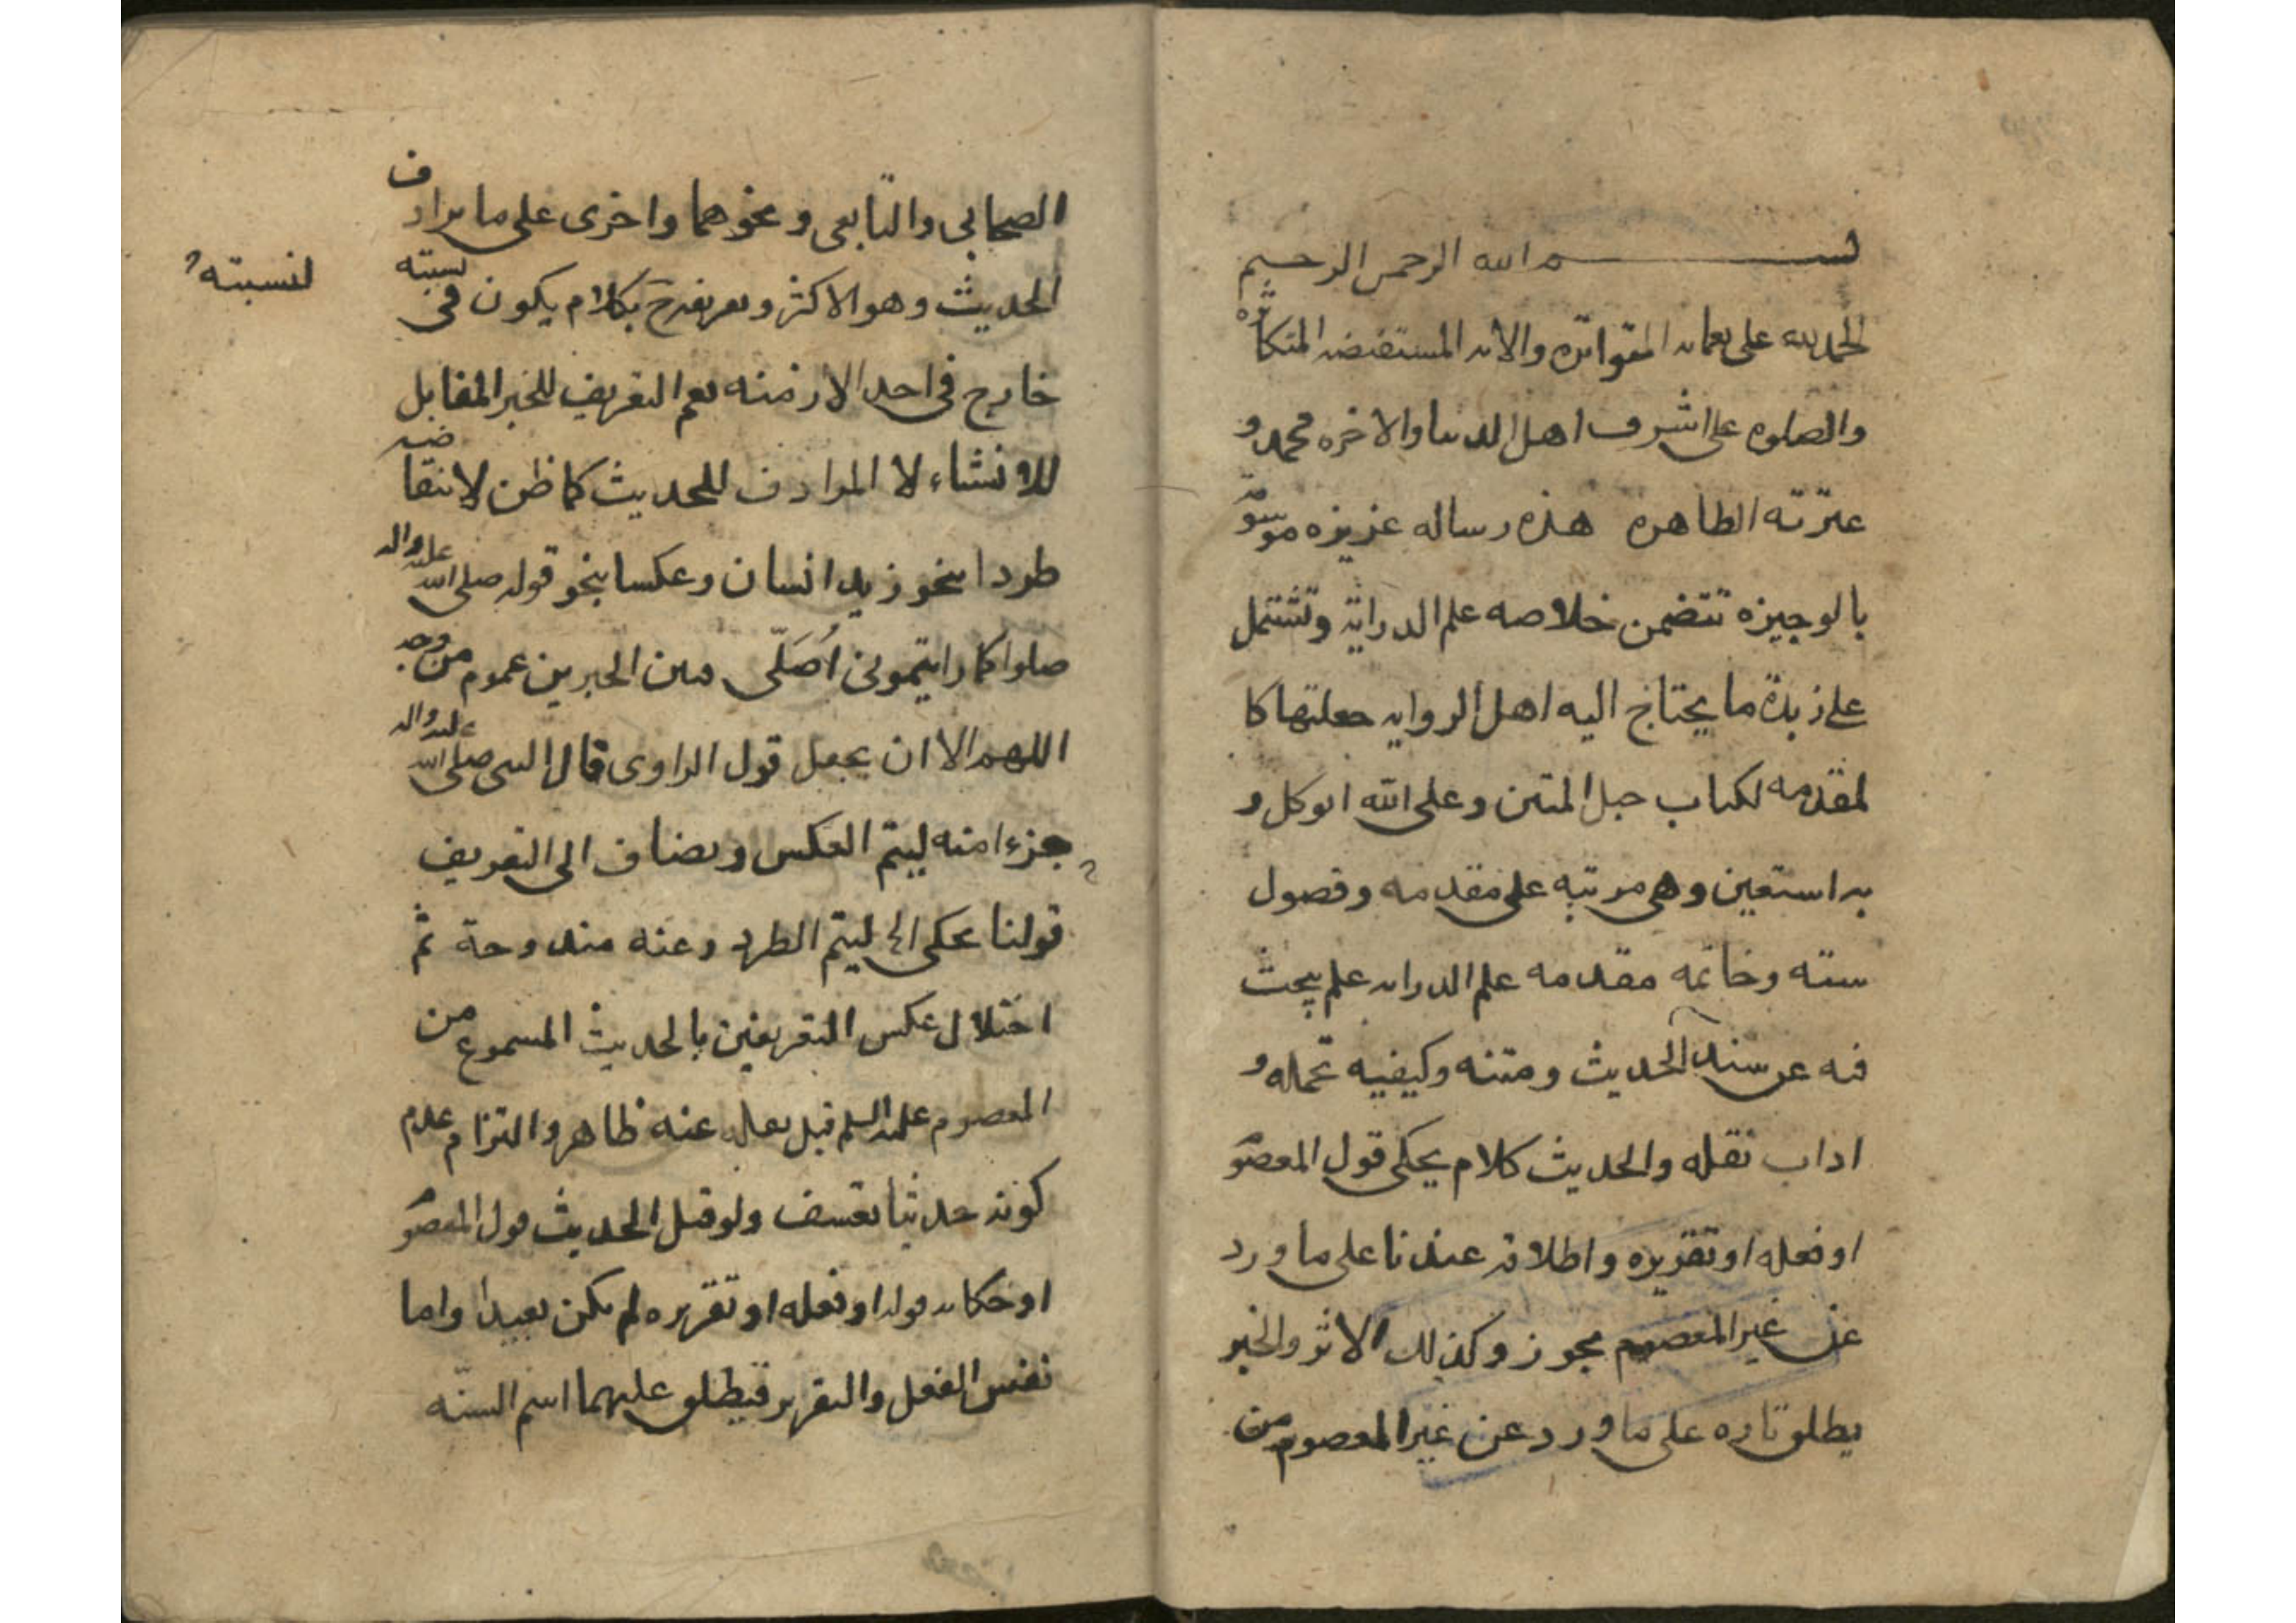 بسم الله الرحمن الرحيم
الحمد لله على نعمائه المتواترة والائه المستفيضه المتكاثره
والصلوه على اشرف اهل الدنيا والاخره محمد و
عترته الطاهره هذه رساله عزيزه موسومة
بالوجيزه تتضمن خلاصه علم الدراية وتشتمل
على زبدة ما يحتاج اليه اهل الروايه جعلتها كا
لمقدمه لكتاب حبل المتين وعلى الله اتوكل و
به استعين وهى مرتبه على مقدمه وفصول
سته وخاتمه مقدمه علم الدرايه علم يبحث
فيه عن سند الحديث ومتنه وكيفيه تحمله و
اداب نقله والحديث كلام يحكى قول المعصوم
او فعله او تقريره واطلاقه عندنا على ما ورد
عن غير المعصوم مجوز وكذلك الاثر والخبر
يطلق تاره على ما ورد عن غير المعصوم من
الصحابي والتابعى ونحوهما واخرى على ما يرادف
الحديث وهو الاكثر وتعريفه ح بكلام يكون فى نسبته
لنسبته
خارج فى احد الازمنه يعم التعريف للخبر المقابل
للانشاء لا المرادف للحديث كما ظن لانتقاضه
طردا بنحو زيد انسان وعكسا بنحو قوله صلى الله عليه واله
صلوا كما رايتمونى اُصَلّى فبين الخبرين عموم من وجه
اللهم الا ان يجعل قول الراوى قال النبى صلى الله عليه واله
جزءا منه ليتم العكس ويضاف الى التعريف
قولنا يحكى الخ ليتم الطرد وعنه مندوحة ثم
اختلال عكس التعريفين بالحديث المسموع من
المعصوم عليه السلم قبل نقله عنه ظاهر والتزام عدم
كونه حديثا تعسف ولو قيل الحديث قول المعصوم
او حكايه قوله او فعله او تقريره لم يكن بعيدا واما
نفس الفعل والتقرير فيطلق عليهما اسم السنّه